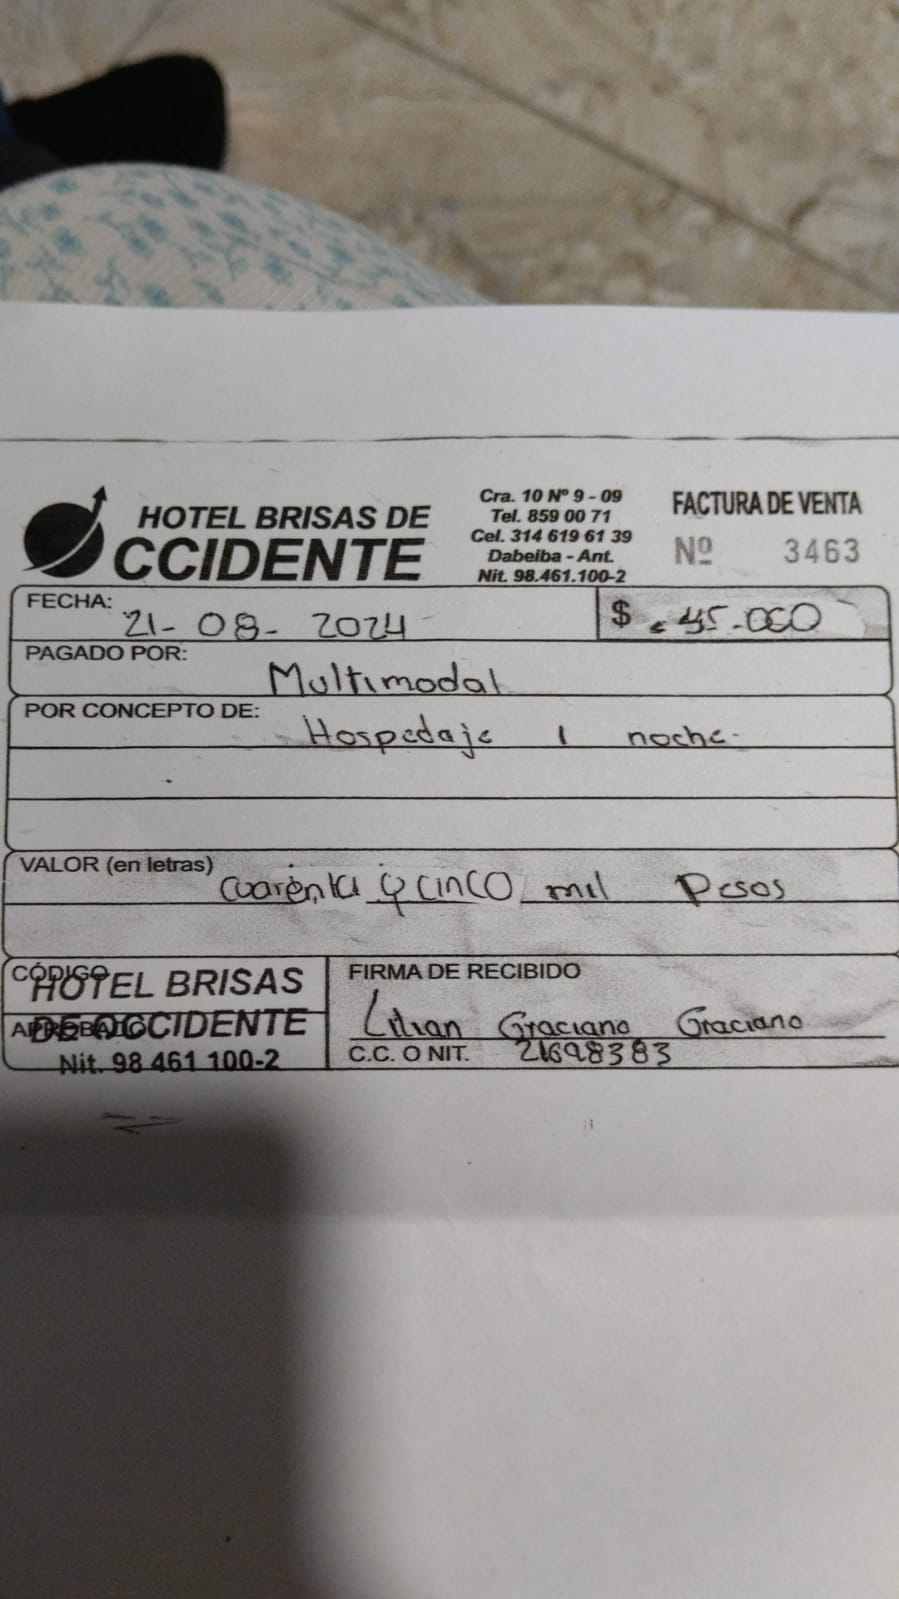 HOTEL BRISAS DE
CCIDENTE
Cra. 10 Nº 9 - 09
Tel. 859 00 71
Cel. 314 619 61 39
Dabeiba - Ant.
Nit. 98.461.100-2
FACTURA DE VENTA
Nº 3463
FECHA: 21- 08- 2024
$ 45.000
PAGADO POR: Multimodal
POR CONCEPTO DE: Hospedaje 1 noche
VALOR (en letras) cuarenta y cinco mil pesos
CÓDIGO
HOTEL BRISAS
APROBADO
DE OCCIDENTE
Nit. 98 461 100-2
FIRMA DE RECIBIDO
Lilian Graciano Graciano
C.C. O NIT. 21698383